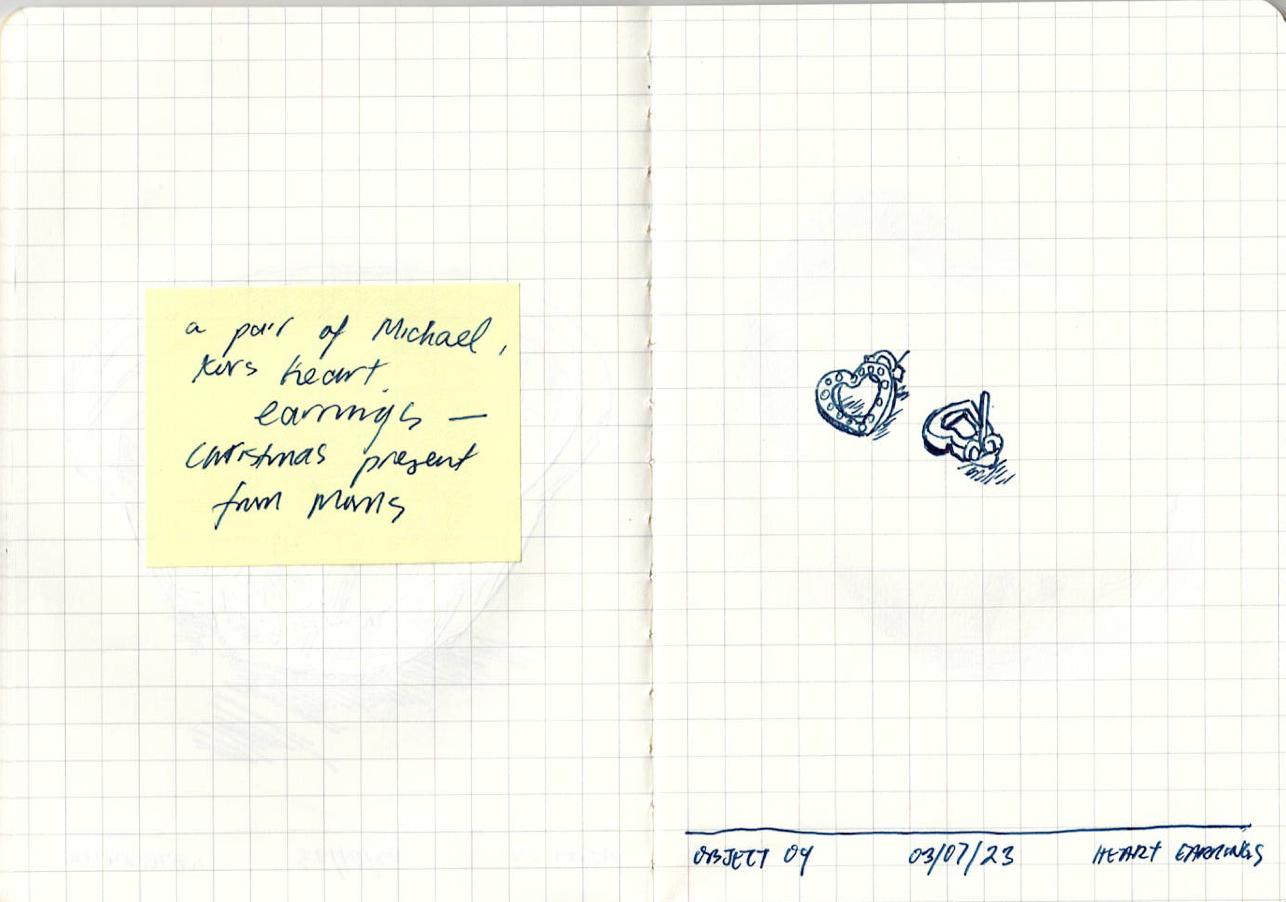 a pair of Michael,
Kors heart
earrings —
christmas present
from Moms
OBJECT 04 03/07/23 HEART EARRINGS